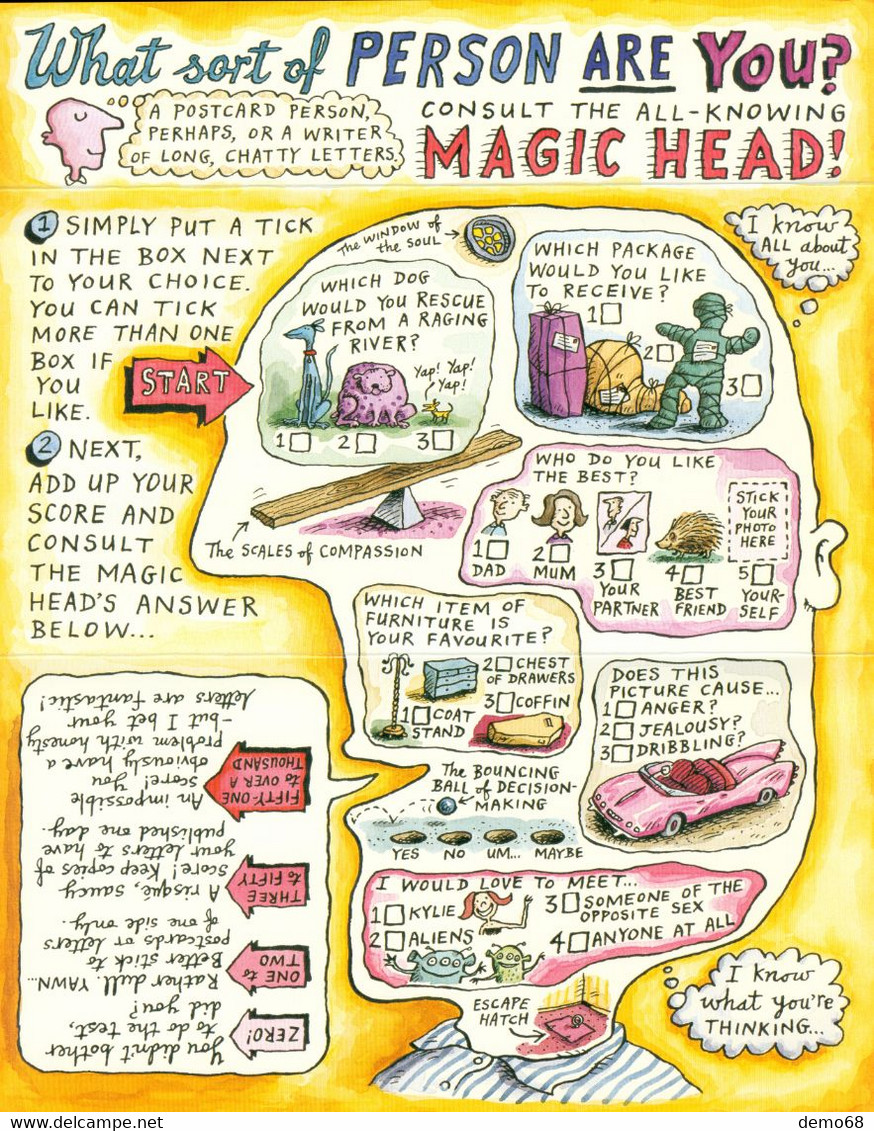 What sort of PERSON ARE YOU?
A POSTCARD PERSON,
PERHAPS, OR A WRITER
OF LONG, CHATTY LETTERS.
CONSULT THE ALL-KNOWING
MAGIC HEAD!
1 SIMPLY PUT A TICK
IN THE BOX NEXT
TO YOUR CHOICE.
YOU CAN TICK
MORE THAN ONE
BOX IF
YOU
LIKE.
START
2 NEXT,
ADD UP YOUR
SCORE AND
CONSULT
THE MAGIC
HEAD'S ANSWER
BELOW...
The WINDOW of
the SOUL
I know
ALL about
you...
WHICH DOG
WOULD YOU RESCUE
FROM A RAGING
RIVER?
Yap! Yap!
Yap!
1 2 3
WHICH PACKAGE
WOULD YOU LIKE
TO RECEIVE?
1
2
3
The SCALES of COMPASSION
WHO DO YOU LIKE
THE BEST?
STICK
YOUR
PHOTO
HERE
1 DAD
2 MUM
3 YOUR
PARTNER
4 BEST
FRIEND
5 YOUR-
SELF
WHICH ITEM OF
FURNITURE IS
YOUR FAVOURITE?
1 COAT
STAND
2 CHEST
OF DRAWERS
3 COFFIN
DOES THIS
PICTURE CAUSE...
1 ANGER?
2 JEALOUSY?
3 DRIBBLING?
The BOUNCING
BALL of DECISION-
MAKING
YES NO UM... MAYBE
I WOULD LOVE TO MEET...
1 KYLIE
2 ALIENS
3 SOMEONE OF THE
OPPOSITE SEX
4 ANYONE AT ALL
ESCAPE
HATCH
I know
what you're
THINKING...
ZERO!
You didn't bother
to do the test,
did you?
ONE to
TWO
Rather dull. YAWN...
Better stick to
postcards or letters
of one side only.
THREE
to FIFTY
A risqué, saucy
score! Keep copies of
your letters to have
published one day.
FIFTY-ONE
to OVER A
THOUSAND
An impossible
score! You
obviously have a
problem with honesty
-but I bet your
letters are fantastic!
delcampe.net
demo68